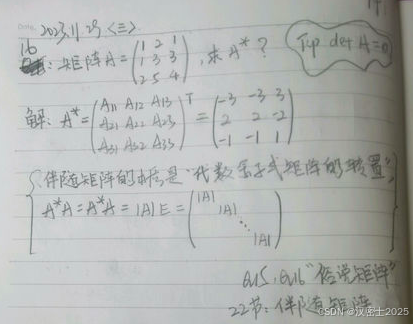 2023.11.29 <三>
16
: 矩阵A = (1 2 1; 1 3 3; 2 5 4), 求A* ?
Tip det A=0
解: A* = (A11 A12 A13; A21 A22 A23; A31 A32 A33)^T = (-3 -3 3; 2 2 -2; -1 -1 1)
伴随矩阵的本质是"代数余子式矩阵的转置"
A*A = A*A = |A|E = (|A| |A| ⋱ |A|)
"俗说矩阵"
22节: 伴随矩阵
CSDN @汉密士2025